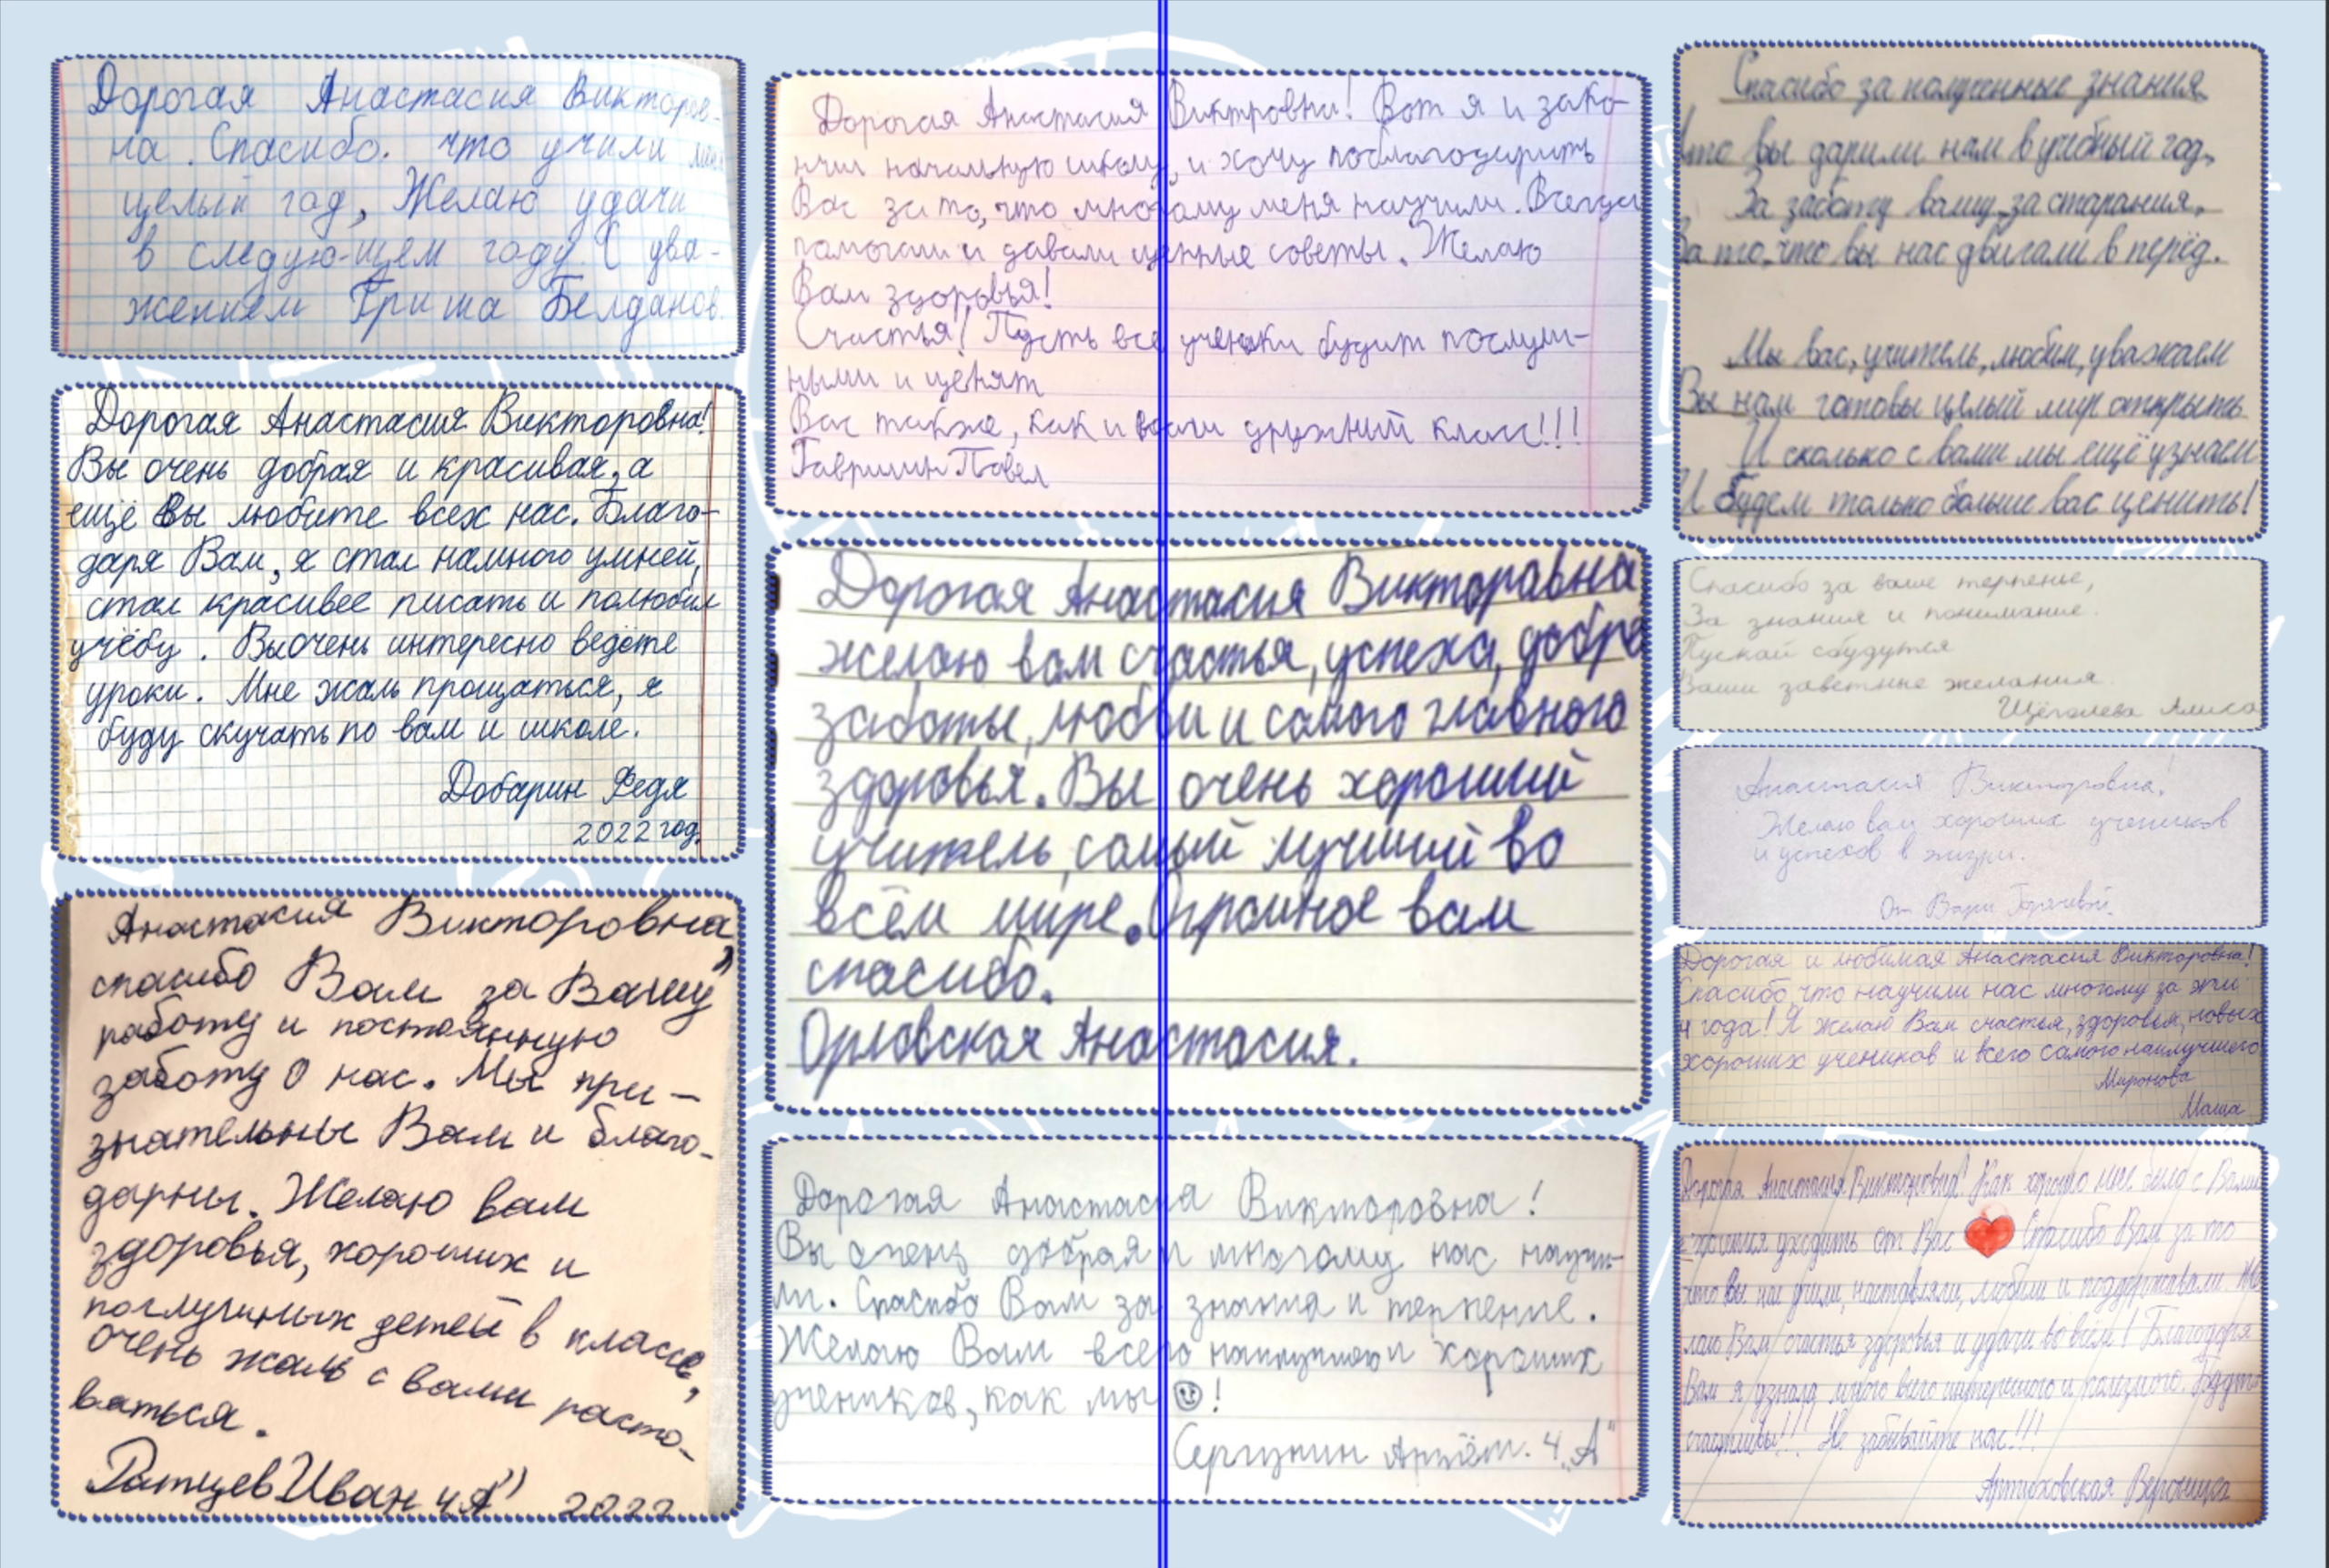 Дорогая Анастасия Викторов-
на. Спасибо. что учили
целый год, Желаю удачи
в следую-щем году. С ува-
жением Гриша Белданов.
Дорогая Анастасия Викторовна!
Вы очень добрая и красивая, а
ещё Вы любите всех нас. Благо-
даря Вам, я стал намного умней,
стал красивее писать и полюбил
учёбу. Вы очень интересно ведёте
уроки. Мне жаль прощаться, я
буду скучать по вам и школе.
Добарин Федя
2022 год.
Анастасия Викторовна,
спасибо Вам за Вашу
работу и постоянную
заботу о нас. Мы при-
знательны Вам и благо-
дарны. Желаю вам
здоровья, хороших и
послушных детей в классе,
очень жаль с вами расто-
ваться.
Иван 4 "А" 2022
Дорогая Анастасия Виктровна! Вот я и зако-
нчил начальную школу, и хочу поблагодарить
Вас за то, что многому меня научили. Всегда
помогали и давали ценные советы. Желаю
Вам здоровья!
Счастья! Пусть все ученики будут послуш-
ными и ценят
Вас также, как и наш дружный класс!!!
Гаврилин Павел
Дорогая Анастасия Викторавна
желаю вам счастья, успеха, добра
заботы, любви и самого главного
здоровья. Вы очень хороший
учитель, самый лучший во
всём мире. Огромное вам
спасибо.
Орловская Анастасия.
Дорогая Анастасия Викторовна!
Вы очень добрая и многому нас научи-
ли. Спасибо Вам за знания и терпение.
Желаю Вам всего наилучшего и хороших
учеников, как мы !
Сергунин Артём. 4 „А"
Спасибо за полученные знания
Что вы дарили нам в учебный год,
За заботу вашу, за старания,
За то, что вы нас двигали в перёд.
Мы вас, учитель, любим, уважаем
Вы нам готовы целый мир открыть
И сколько с вами мы ещё узнаем
И будем только больше вас ценить!
Спасибо за ваше терпенье,
За знания и понимание.
Пускай сбудутся
Ваши заветные желания.
Щёголева Алиса
Анастасия Викторовна!
Желаю вам хороших учеников
и успехов в жизни.
От Вари Горячевой.
Дорогая и любимая Анастасия Викторовна!
Спасибо, что научили нас многому за эти
4 года! Я желаю Вам счастья, здоровья, новых
хороших учеников и всего самого наилучшего
Миронова
Маша
Дорогая Анастасия Викторовна! Как хорошо мне было с Вами
уходить от Вас Спасибо Вам за то
что вы нас учили, наставляли, любили и поддерживали. Же-
лаю Вам счастья здоровья и удачи во всём! Благодаря
Вам я узнала много всего интересного и полезного. Будьте
счастливы!!! Не забывайте нас!!!
Артюховская Вероника